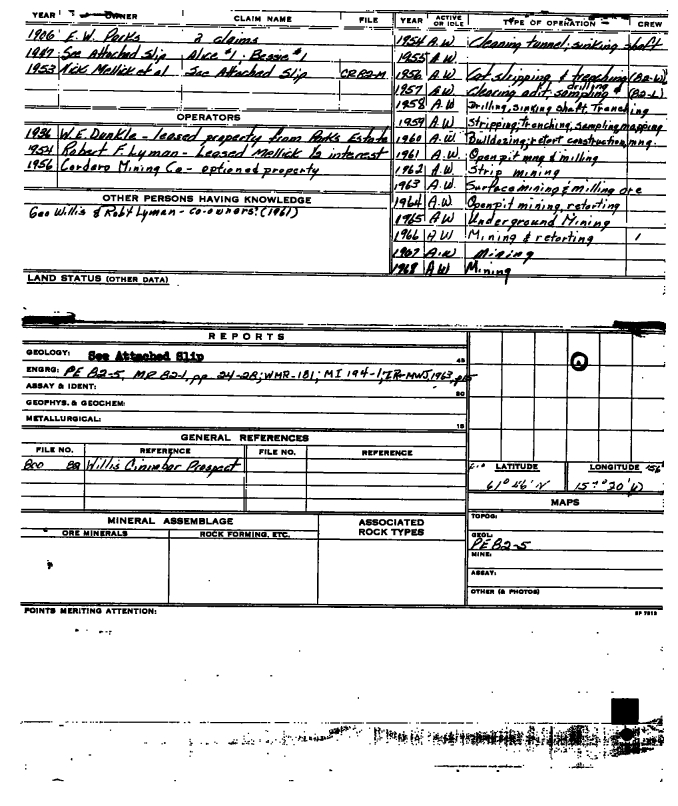 YEAR OWNER CLAIM NAME FILE
1906 E.W. Parks 2 claims
See Attached Slip Alice #1, Bessie #1
1953 Nick Mellick et al See Attached Slip
OPERATORS
1936 W.E. Dunkle - leased property from Parks Estate
1954 Robert F. Lyman - Leased Mellick interest
1956 Cordero Mining Co - optioned property
OTHER PERSONS HAVING KNOWLEDGE
Geo Willis & Rob't Lyman - co-owners (1961)
LAND STATUS (OTHER DATA)
YEAR ACTIVE OR IDLE TYPE OF OPERATION CREW
1954 A.W. Cleaning tunnel, sinking shaft
1955 A.W.
1956 A.W. Cat stripping & trenching
1957 A.W. Clearing adit, sampling & drilling (B2-L)
1958 A.W. Drilling, sinking shaft, Trenching
1959 A.W. Stripping, trenching, sampling, mapping
1960 A.W. Bulldozing, retort construction, mng.
1961 A.W. Open pit mng & milling
1962 A.W. Strip mining
1963 A.W. Surface mining & milling ore
1964 A.W. Open pit mining, retorting
1965 A.W. Underground Mining
1966 A.W. Mining & retorting 1
1967 A.W. Mining
1968 A.W. Mining
REPORTS
GEOLOGY: See Attached Slip 45
ENGRG: PE 82-5, MR 82-1, pp 24-28; WMR-181; MI 194-1; IR-MWJ, 1963, p15
ASSAY & IDENT:
GEOPHYS. & GEOCHEM:
METALLURGICAL: 15
GENERAL REFERENCES
FILE NO. REFERENCE FILE NO. REFERENCE
800 82 Willis Cinnabar Prospect
LATITUDE LONGITUDE 156
61° 46' N
MAPS
TOPOG:
GEOL:
PE 82-5
MINE:
ASSAY:
OTHER (& PHOTOS)
MINERAL ASSEMBLAGE ASSOCIATED ROCK TYPES
ORE MINERALS ROCK FORMING, ETC.
POINTS MERITING ATTENTION: